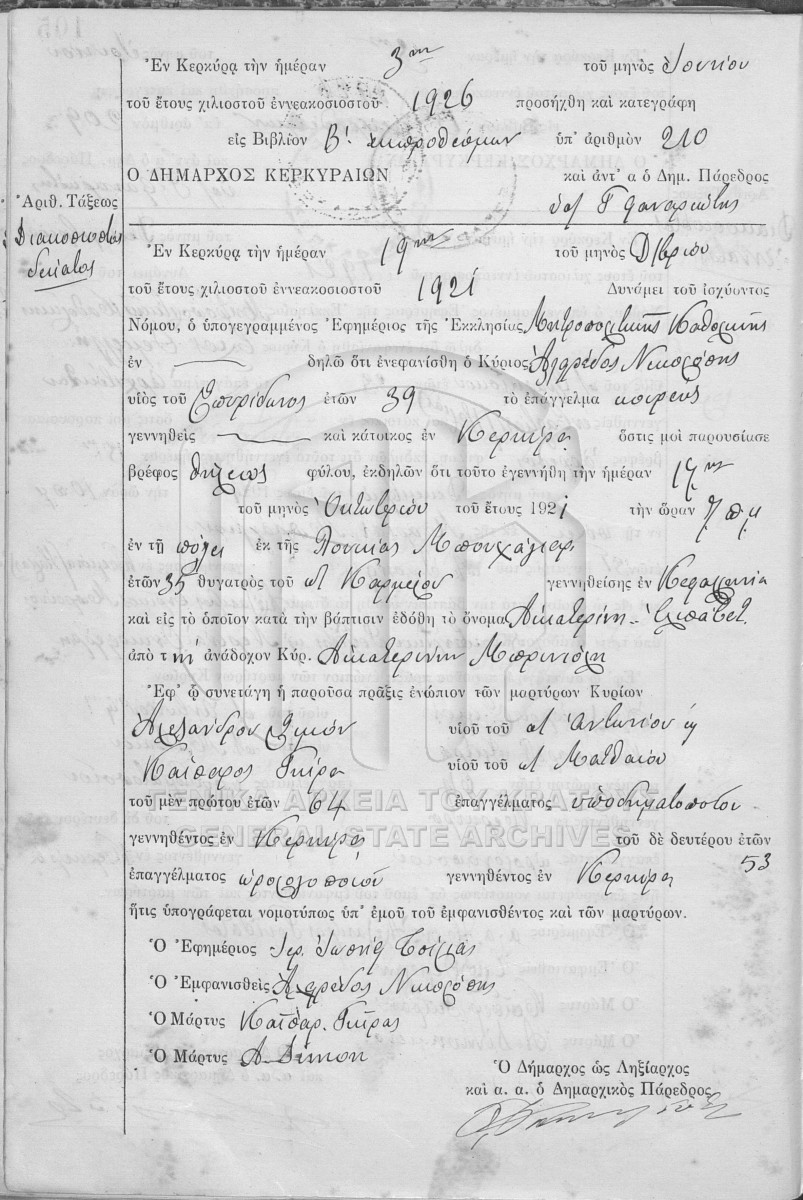 Ἐν Κερκύρᾳ τὴν ἡμέραν 3ην τοῦ μηνὸς Ἰουνίου
τοῦ ἔτους χιλιοστοῦ ἐννεακοσιοστοῦ 1926 προσήχθη καὶ κατεγράφη
εἰς Βιβλίον Β! ἐκπροθέσμων ὑπ' ἀριθμὸν 210
Ο ΔΗΜΑΡΧΟΣ ΚΕΡΚΥΡΑΙΩΝ καὶ ἀντ' α ὁ Δημ. Πάρεδρος
Ἀριθ. Τάξεως
Διακοσιοστὸς
Δέκατος
Ἐν Κερκύρᾳ τὴν ἡμέραν 19ην τοῦ μηνὸς Δ/βρίου
τοῦ ἔτους χιλιοστοῦ ἐννεακοσιοστοῦ 1921 Δυνάμει τοῦ ἰσχύοντος
Νόμου, ὁ ὑπογεγραμμένος Ἐφημέριος τῆς Ἐκκλησίας Μητροπολιτικῆς Καθολικῆς
ἐν δηλῶ ὅτι ἐνεφανίσθη ὁ Κύριος Ἀλφρέδος
υἱὸς τοῦ Σπυρίδωνος ἐτῶν 39 τὸ ἐπάγγελμα κουρεὺς
γεννηθεὶς καὶ κάτοικος ἐν Κερκύρᾳ ὅστις μοὶ παρουσίασε
βρέφος θήλεως φύλου, ἐκδηλῶν ὅτι τοῦτο ἐγεννήθη τὴν ἡμέραν 17ην
τοῦ μηνὸς Ὀκτωβρίου τοῦ ἔτους 1921 τὴν ὥραν 7 π.μ
ἐν τῇ πόλει ἐκ τῆς Λουκίας
ἐτῶν 35 θυγατρὸς τοῦ Καρμέλου γεννηθείσης ἐν Κεφαλληνία
καὶ εἰς τὸ ὁποῖον κατὰ τὴν βάπτισιν ἐδόθη τὸ ὄνομα Αἰκατερίνη - Ἐλισάβετ.
ἀπὸ τὴν ἀνάδοχον Κύρ. Αἰκατερίνην
Ἐφ' ᾧ συνετάγη ἡ παροῦσα πρᾶξις ἐνώπιον τῶν μαρτύρων Κυρίων
Ἀλεξάνδρου Διμὸν υἱοῦ τοῦ Ἀντωνίου
Καίσαρος Γκίρα υἱοῦ τοῦ Ματθαίου
τοῦ μὲν πρώτου ἐτῶν 64 ἐπαγγέλματος ὑποδηματοποιοῦ
ΓΕΝΙΚΑ ΑΡΧΕΙΑ ΤΟΥ ΚΡΑΤΟΥΣ
GENERAL STATE ARCHIVES
γεννηθέντος ἐν Κερκύρᾳ τοῦ δὲ δευτέρου ἐτῶν 53
ἐπαγγέλματος ὡρολογοποιοῦ γεννηθέντος ἐν Κερκύρᾳ
ἥτις ὑπογράφεται νομοτύπως ὑπ' ἐμοῦ τοῦ ἐμφανισθέντος καὶ τῶν μαρτύρων.
Ὁ Ἐφημέριος Ἱερ. Ἰωσὴφ
Ὁ Ἐμφανισθεὶς Ἀλφρέδος
Ὁ Μάρτυς Καίσαρ. Γκίρας
Ὁ Μάρτυς Α. Διμον
Ὁ Δήμαρχος ὡς Ληξίαρχος
καὶ α. α. ὁ Δημαρχικὸς Πάρεδρος